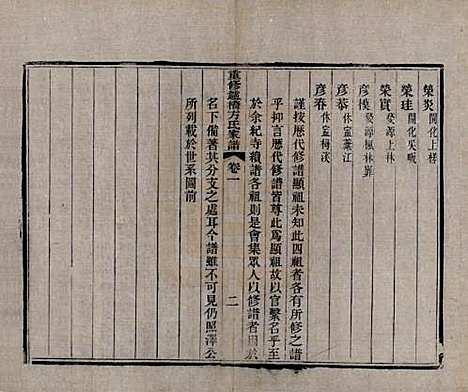 榮炎 開化上樣
榮珪 開化吴畈
榮實 婺源上林
彦模 婺源風林
彦恭 休富葉江
彦春 休富梅溪
謹按歷代修譜顯祖未知此四祖者各有所修之譜
乎抑言歷代修譜皆尊此為顯祖故以官繫名乎至
於余紀寺積譜各祖則是會集眾人以修譜者因於
名下備著其分支之處耳今譜雖不可見仍照澤公
所列載於世系圖前
重修鑪橋方氏家譜 卷一 二